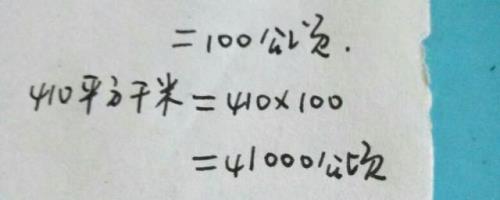 =100公顷.
410平方千米=410×100
=41000公顷